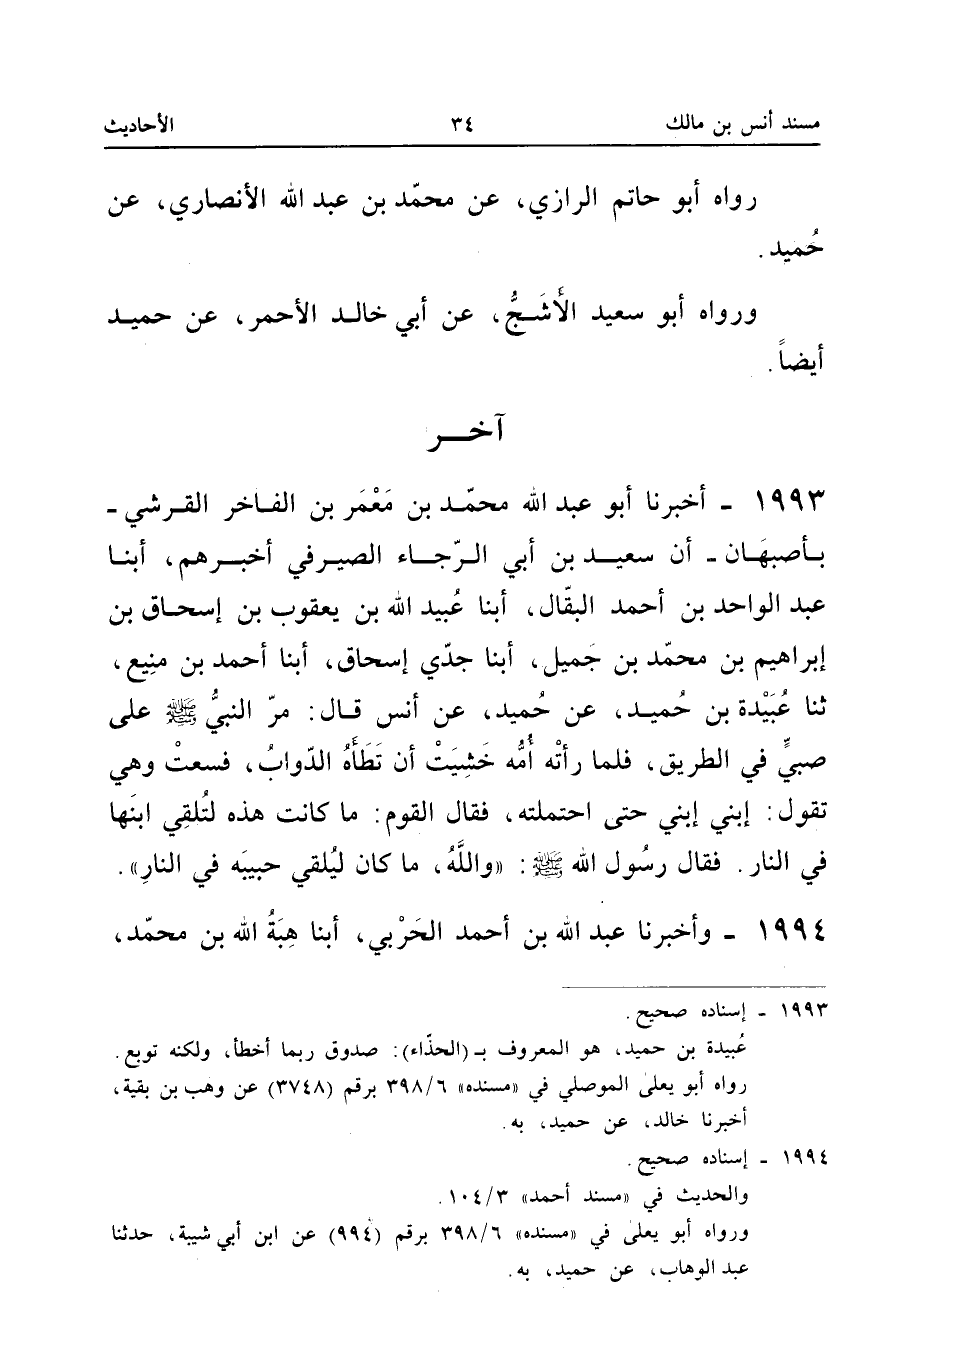 مسند أنس بن مالك ٣٤ الأحاديث
رواه أبو حاتم الرازي، عن محمّد بن عبد الله الأنصاري، عن
حُميد.
ورواه أبو سعيد الأَشَجُّ، عن أبي خالد الأحمر، عن حميد
أيضاً.
آخر
١٩٩٣ - أخبرنا أبو عبد الله محمّد بن مَعْمَر بن الفاخر القرشي -
بأصبهَان - أن سعيد بن أبي الرّجاء الصيرفي أخبرهم، أبنا
عبد الواحد بن أحمد البقّال، أبنا عُبيد الله بن يعقوب بن إسحاق بن
إبراهيم بن محمّد بن جَميل، أبنا جدّي إسحاق، أبنا أحمد بن منِيع،
ثنا عُبَيْدة بن حُميد، عن حُميد، عن أنس قال: مرّ النبيُّ ﷺ على
صبيٍّ في الطريق، فلما رأتْه أُمُّه خَشِيَتْ أن تَطَأَهُ الدّوابُ، فسعتْ وهي
تقول: إبني إبني حتى احتملته، فقال القوم: ما كانت هذه لتُلقِي ابنَها
في النار. فقال رسُول الله ﷺ: «واللَّهُ، ما كان ليُلقي حبيبَه في النارِ».
١٩٩٤ - وأخبرنا عبد الله بن أحمد الحَرْبي، أبنا هِبَةُ الله بن محمّد،
١٩٩٣ - إسناده صحيح.
عُبيدة بن حميد، هو المعروف بـ (الحذّاء): صدوق ربما أخطأ، ولكنه توبع.
رواه أبو يعلىٰ الموصلي في «مسنده» ٣٩٨/٦ برقم (٣٧٤٨) عن وهب بن بقية،
أخبرنا خالد، عن حميد، به.
١٩٩٤ - إسناده صحيح.
والحديث في «مسند أحمد» ١٠٤/٣.
ورواه أبو يعلىٰ في «مسنده» ٣٩٨/٦ برقم (٩٩٤) عن ابن أبي شيبة، حدثنا
عبد الوهاب، عن حميد، به.